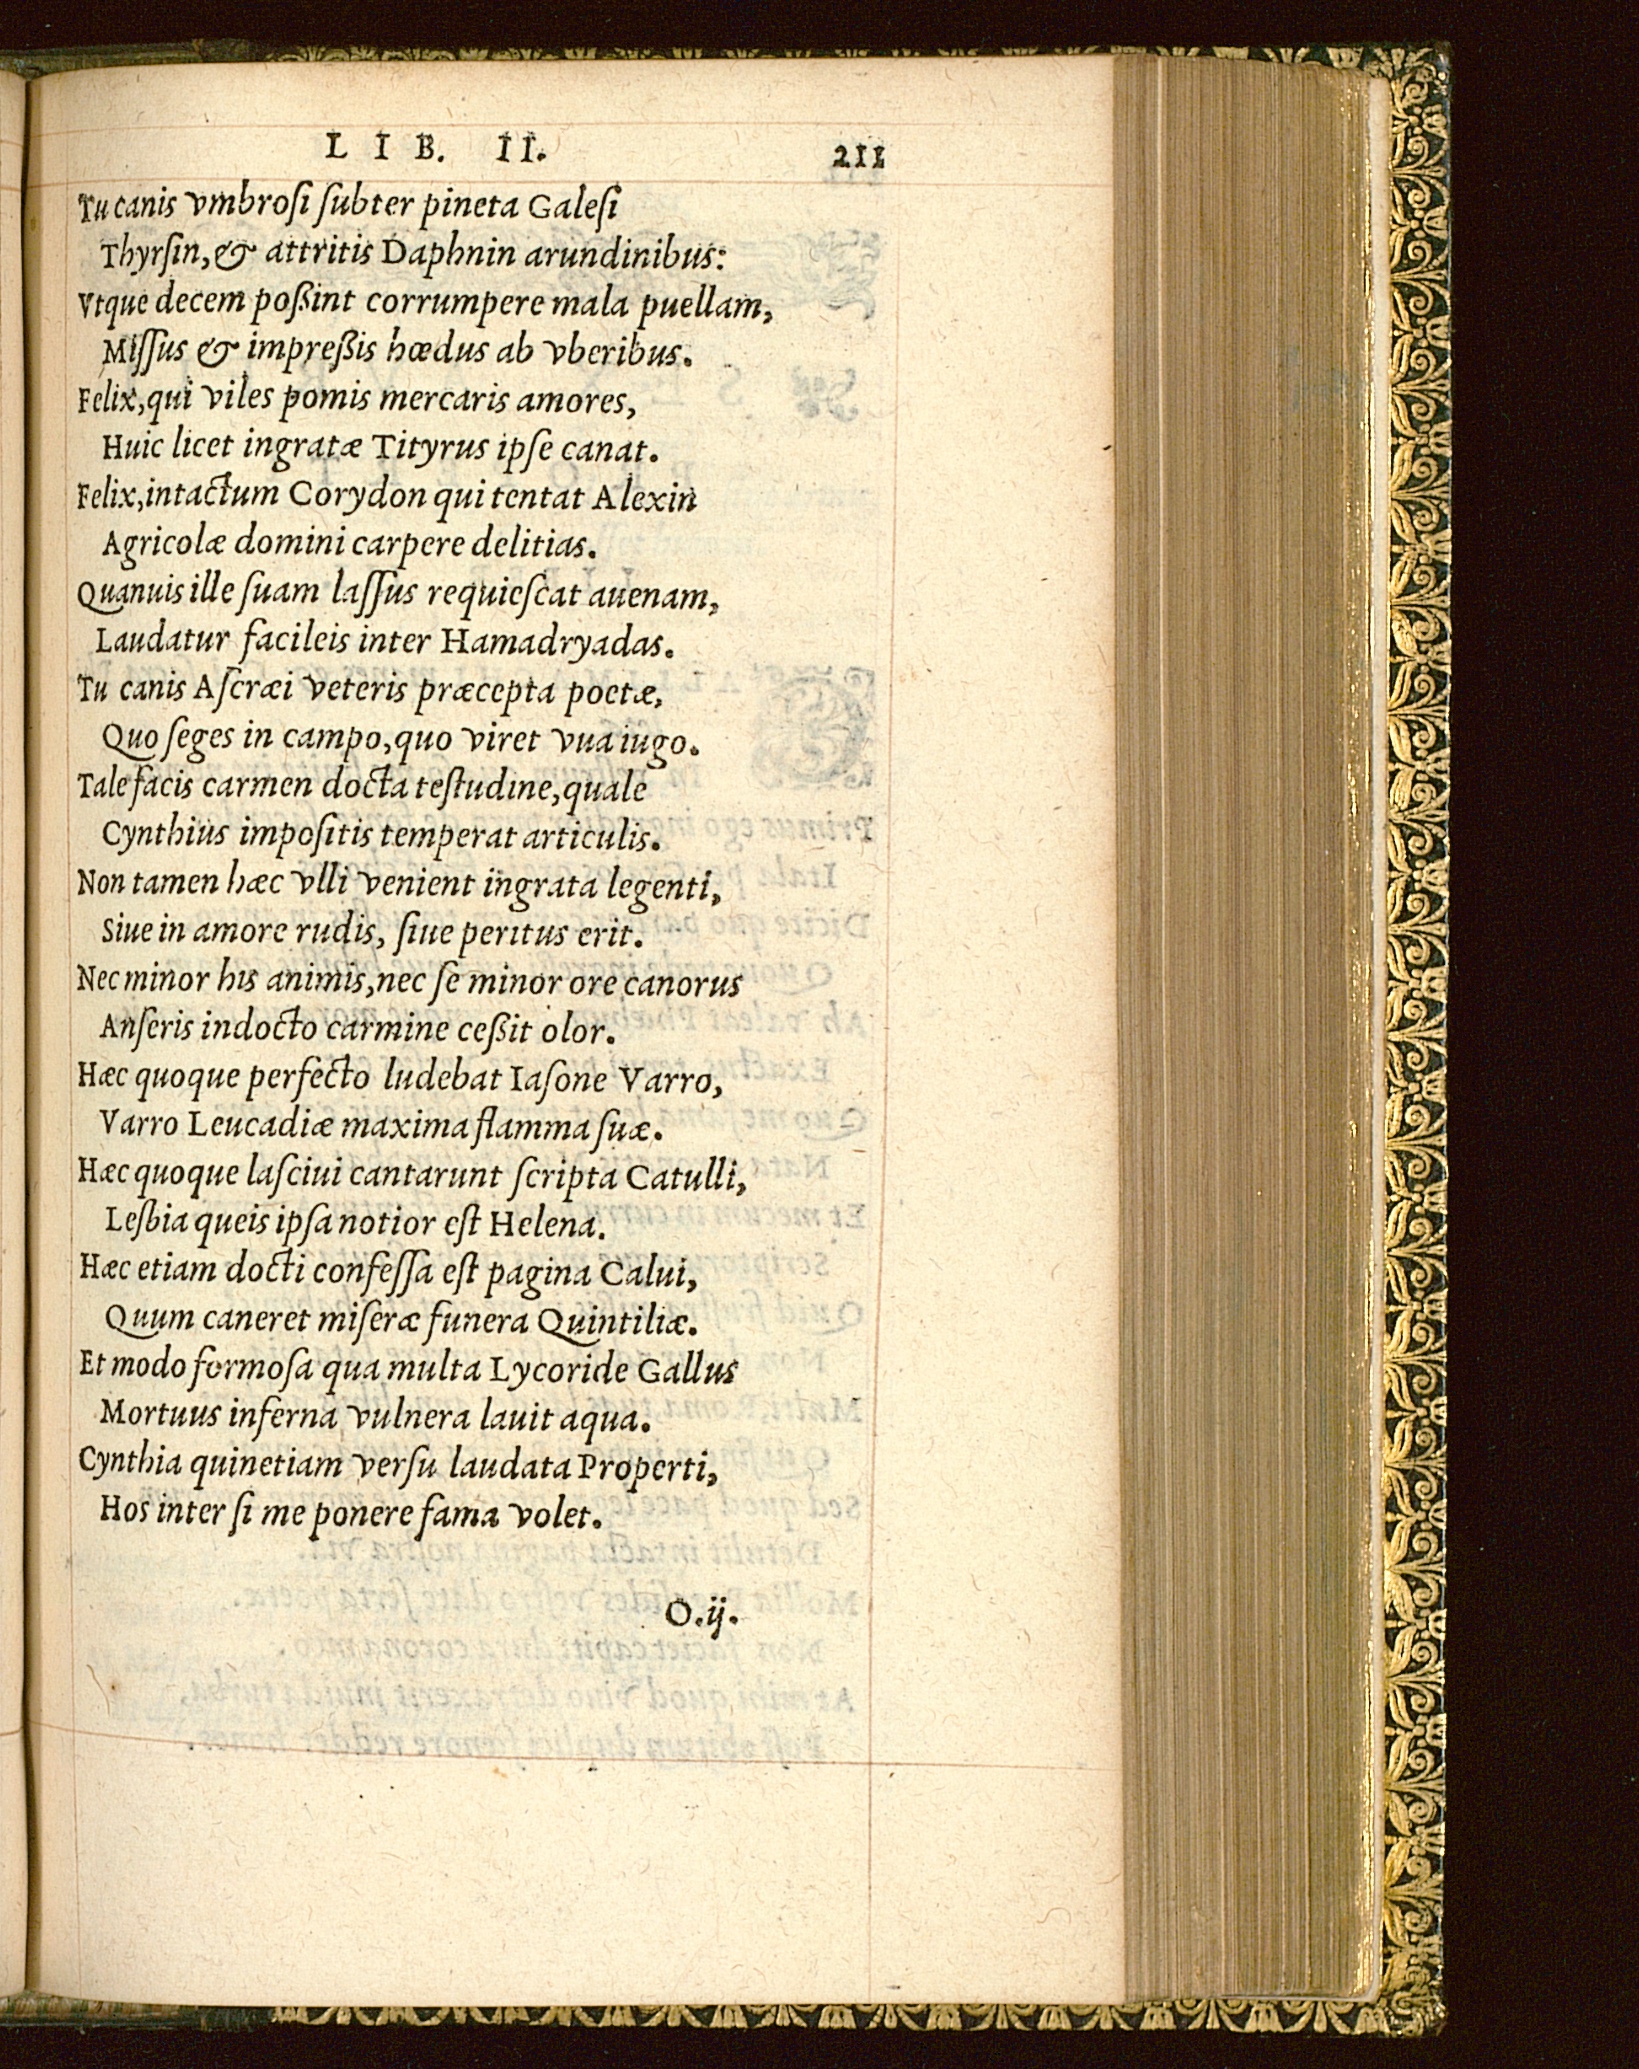 LIB. II. 211
Tu canis vmbroſi ſubter pineta Galeſi
Thyrſin, & attritis Daphnin arundinibus:
Vtque decem poßint corrumpere mala puellam,
Miſſus & impreßis hœdus ab vberibus.
Felix, qui viles pomis mercaris amores,
Huic licet ingratæ Tityrus ipſe canat.
Felix, intactum Corydon qui tentat Alexin
Agricolæ domini carpere delitias.
Quanuis ille ſuam laſſus requieſcat auenam,
Laudatur facileis inter Hamadryadas.
Tu canis Aſcræi veteris præcepta poetæ,
Quo ſeges in campo, quo viret vua iugo.
Tale facis carmen docta teſtudine, quale
Cynthius impoſitis temperat articulis.
Non tamen hæc vlli venient ingrata legenti,
Siue in amore rudis, ſiue peritus erit.
Nec minor his animis, nec ſe minor ore canorus
Anſeris indocto carmine ceßit olor.
Hæc quoque perfecto ludebat Iaſone Varro,
Varro Leucadiæ maxima flamma ſuæ.
Hæc quoque laſciui cantarunt ſcripta Catulli,
Leſbia queis ipſa notior eſt Helena.
Hæc etiam docti confeſſa eſt pagina Calui,
Quum caneret miſeræ funera Quintiliæ.
Et modo formoſa qua multa Lycoride Gallus
Mortuus inferna vulnera lauit aqua.
Cynthia quinetiam verſu laudata Properti,
Hos inter ſi me ponere fama volet.
O.ij.